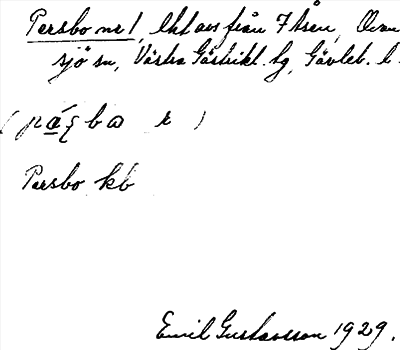 Persbo nr 1, lht avs från 7 Åsen, Ovan
sjö sn, Västra Gästrikl. hg, Gävleb. l.
Persbo kb
Emil Gustavsson 1929.